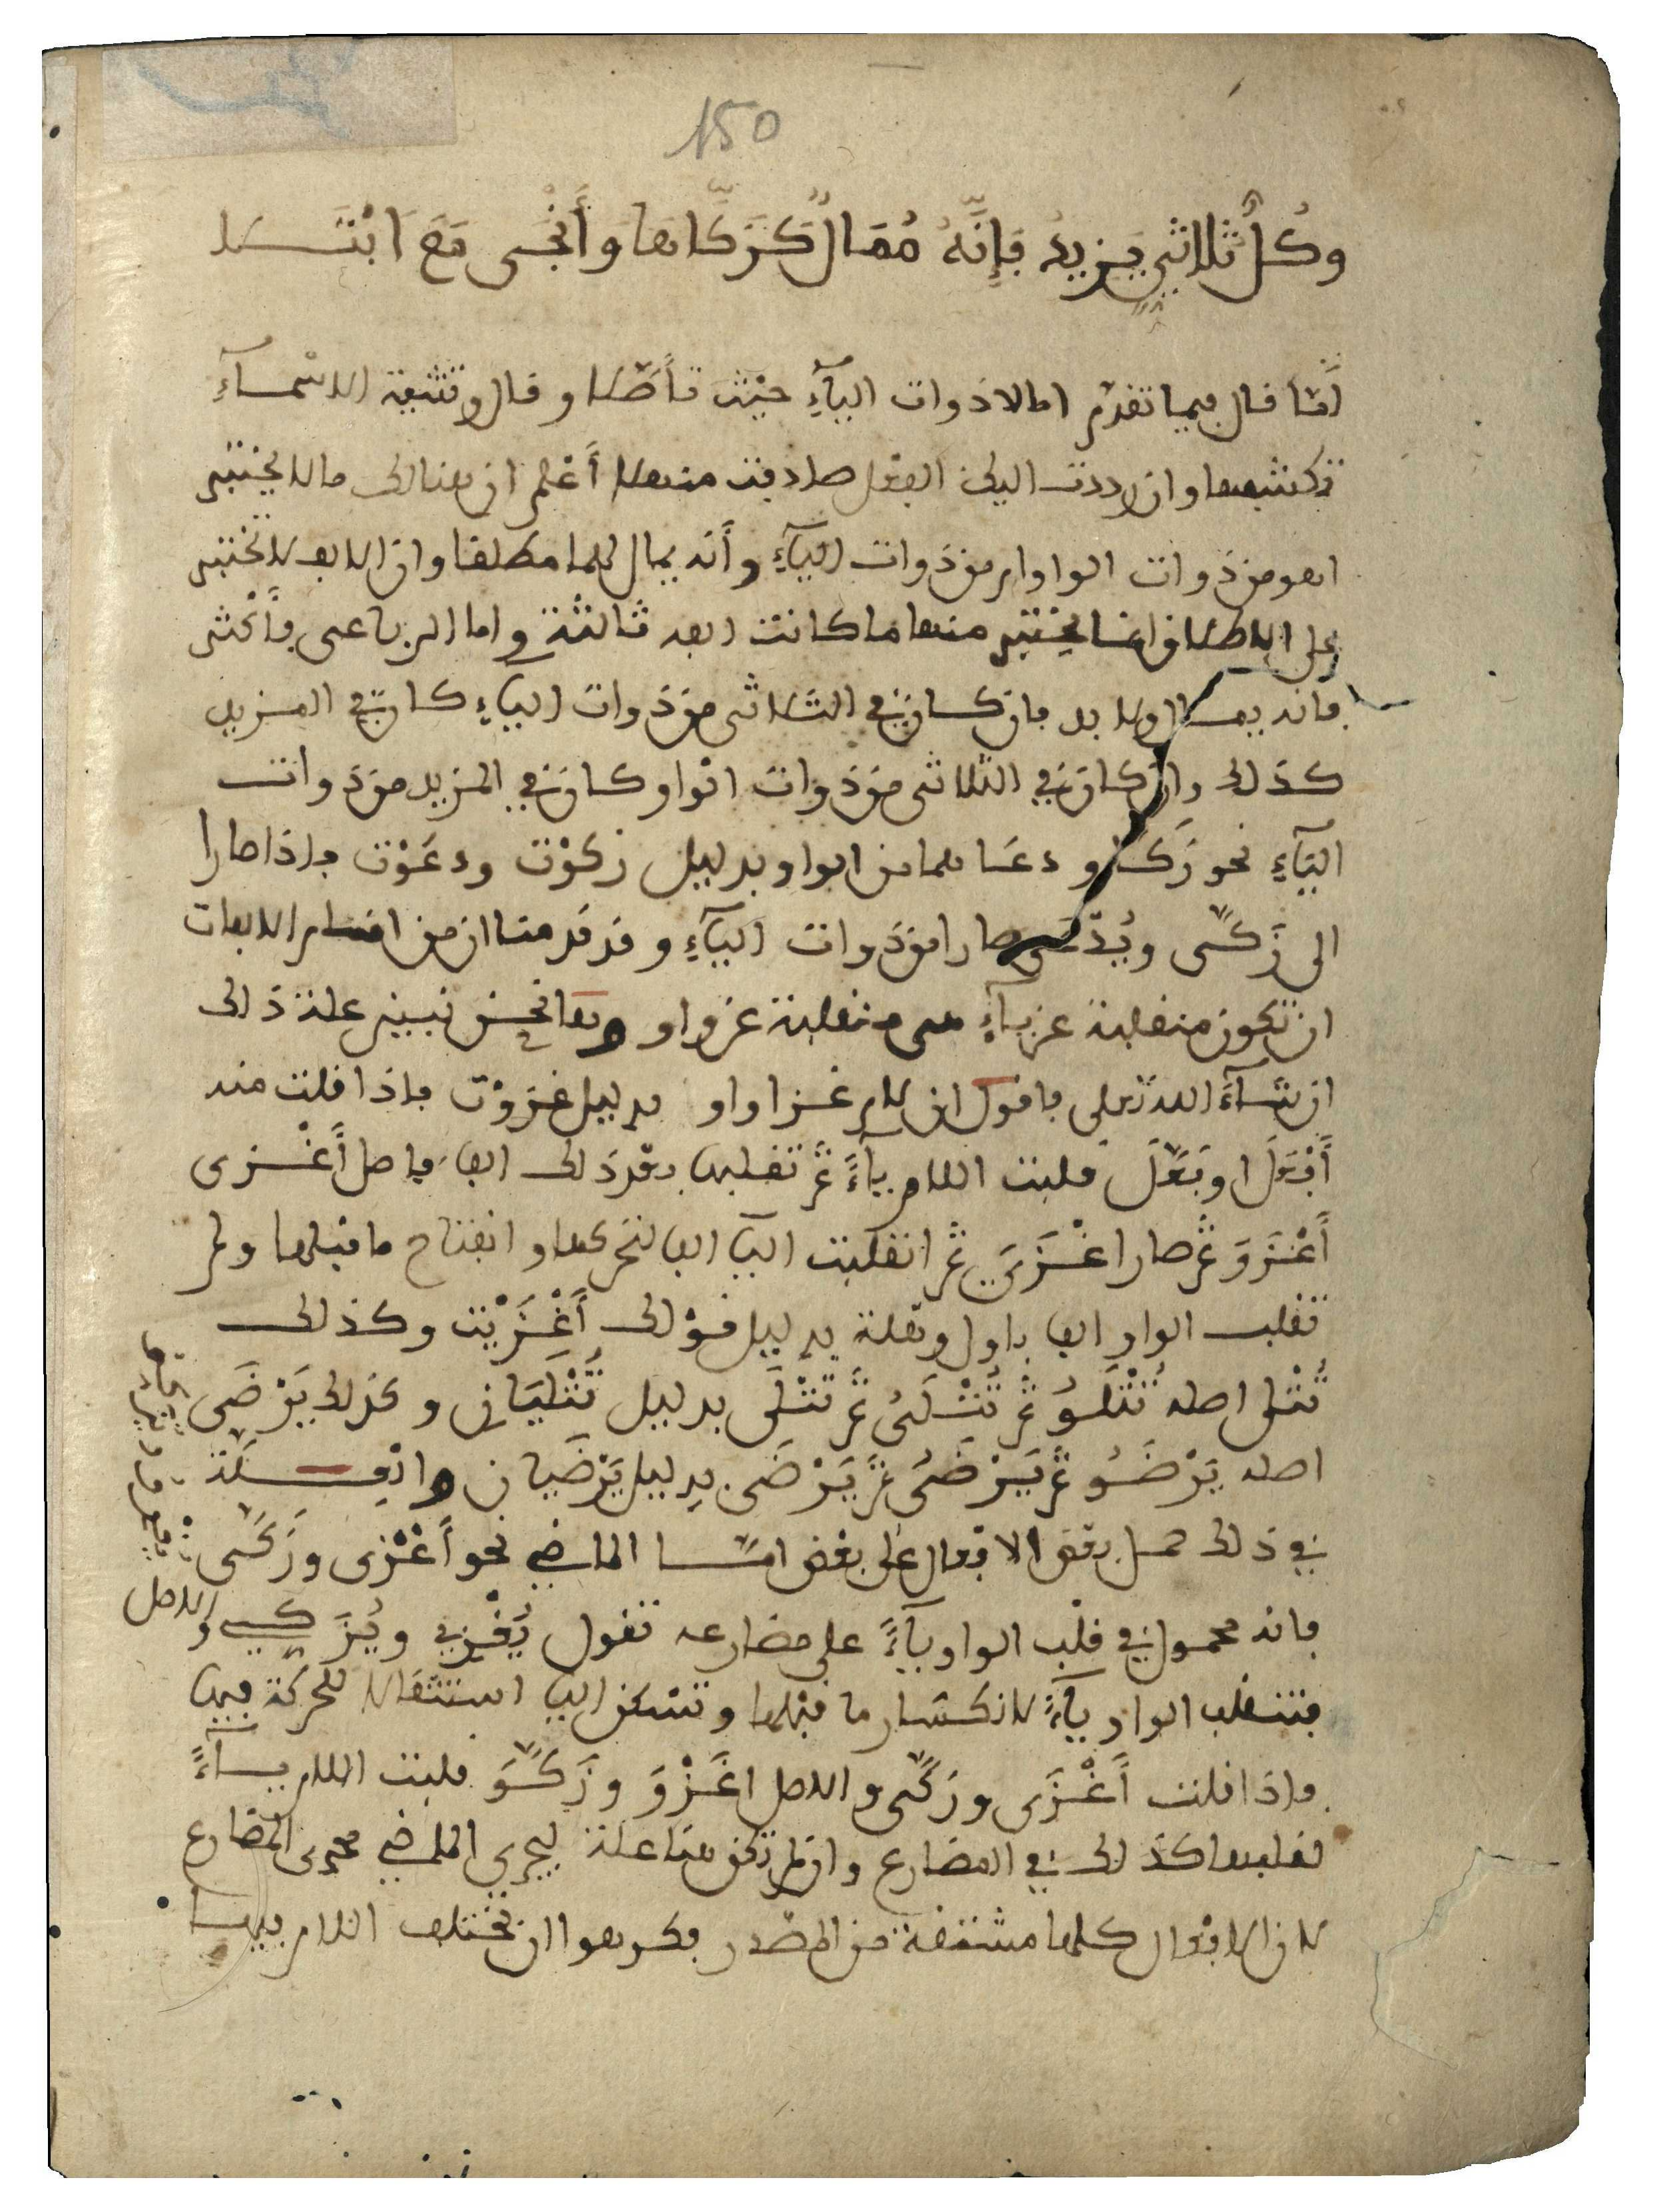 150
وَكُلُّ ثُلَاثِيٍّ يَزِيدُ فَإِنَّهُ مُمَالٌ كَزَكَّاهَا وَأَنْجَى مَعَ ابْتَلَى
لَمّا قال فيما تقدم امالا ذوات اليآءِ حيْث تأصّلا وقال وتثنية الاسمآءِ
تكشفها وان رددت اليك الفعْل صادفت منهلا أعْلم ان هنالك ما لا يختبر
اهو من ذوات الواو ام من ذوات اليآءِ وأنه يمال كلما مطلقا وان الالف لا تختبر
على الاطلاق انما يختبر منها ما كانت الفه ثالثة واما الرباعى فأكثر
فانه يمال ولا بد فان كان في الثلاثى من ذوات اليآءِ كان في المزيد
كذلك وان كان في الثلاثى من ذوات الواو كان في المزيد من ذوات
اليآءِ نحو زكا ودعا هما من الواو بدليل زكوْت ودعَوْت فاذا صارا
الى زَكَّى ويُدْعَى صارا من ذوات اليآءِ وقد قدمنا ان من اقسام الالفات
ان تكون منقلبة عن يآءٍ هى منقلبة عن واو وها نحن نبين علة ذلك
ان شآءَ الله تعلى فاقول ان لام غزا واو بدليل غزوْت فاذا قلت منه
أَفْعَلَ او فَعَّلَ قلبت اللام يآءً ثم تقلبها بعْد ذلك الفا فاصل أَغْزى
أَغْزَوَ ثم صار اغْزَيَ ثم انقلبت اليا الفا لتحركها وانفتاح ما قبلها ولم
تقلب الواو الفا باول وهلة بدليل قوْلك أَغْزَيْت وكذلك
تُتْلى اصله تُتْلَوُ ثم تُتْلَىُ ثم تتْلَى بدليل تُتْلَيَان وكذلك يَرْضَى
اصله يَرْضَوُ ثم يَرْضَىُ ثم يَرْضَى بدليل يَرْضَيان والعِلَّة
في ذلك حمل بعْض الافعال على بعْض امّا الماضي نحو أَغْزى وزَكَّى
فانه محمول في قلْب الواو يآءً على مضارعه تقول يُغْزِي ويُزَكِّي والاصل
فتنقلب الواو يآءً لانكسار ما قبْلها وتسْكن اليا استثقالا للحركة فيها
فاذا قلت أَغْزَى وزَكَّى والاصل اغَزْوَ وزَكَّوَ قلبت اللام يآءً
لقلبها كذلك في المضارع وان لم تكن هنا علة ليجري الماضي مجرى المضارع
لان الافعال كلها مشتقة من المصْدر فكرهوا ان تختلف اللام فيها